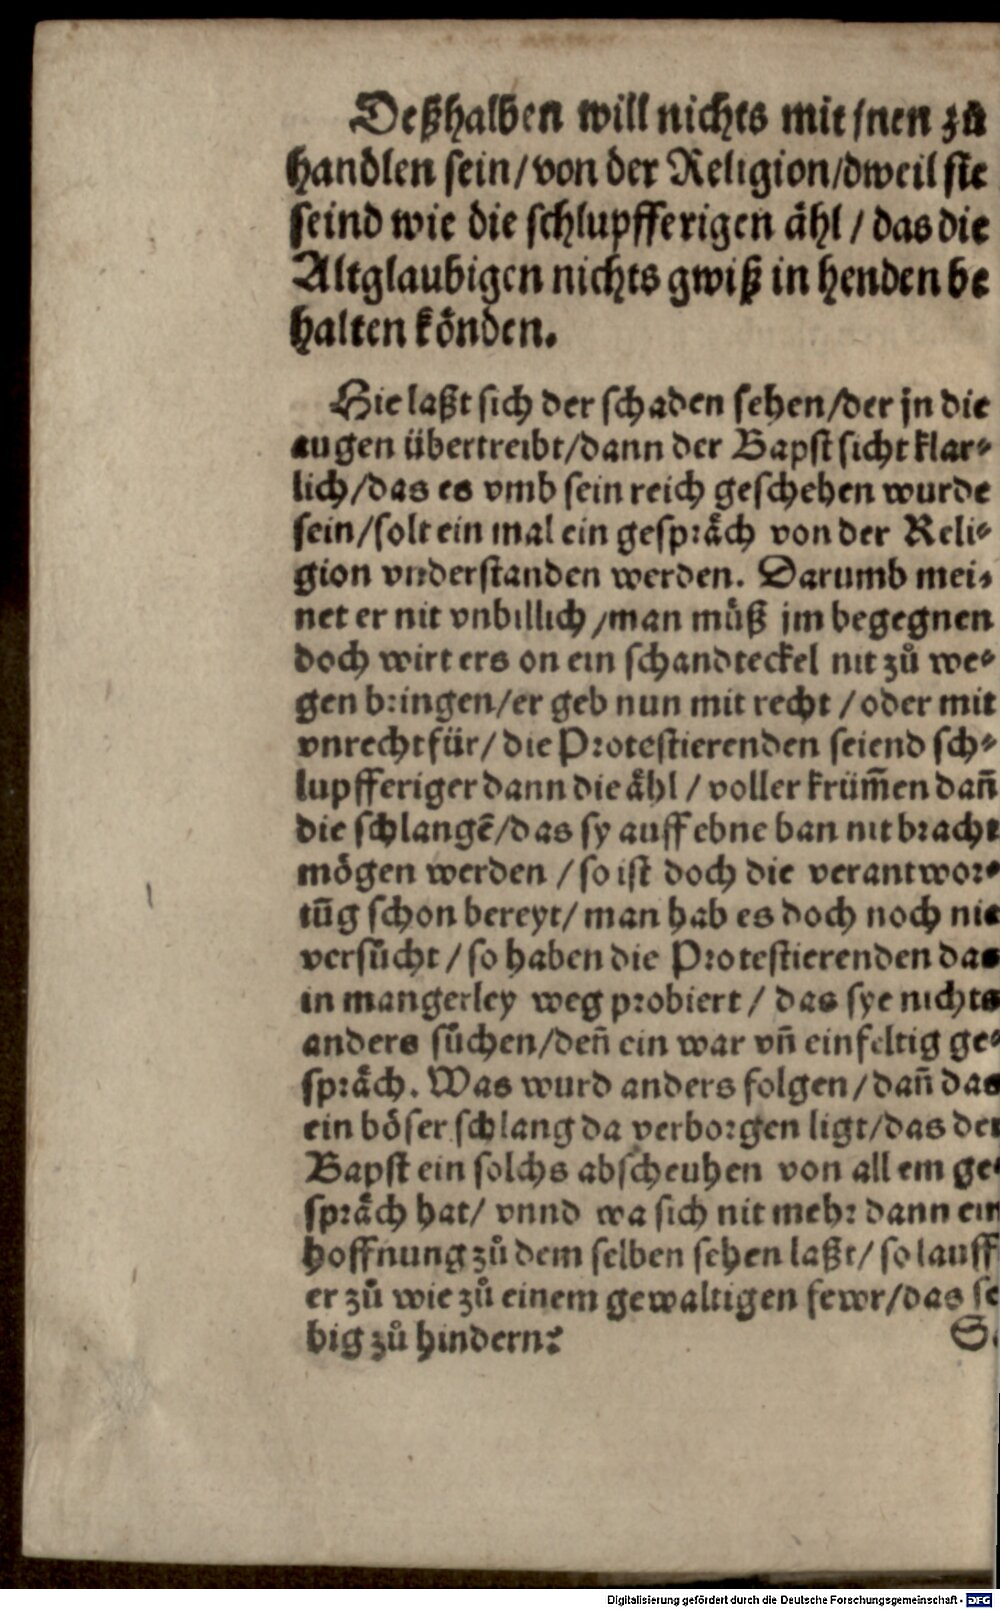 Deßhalben will nichts mit jnen zů
handlen sein/von der Religion/dweil sie
seind wie die schlupfferigen ähl / das die
Altglaubigen nichts gwiß in henden be
halten könden.
Hie laßt sich der schaden sehen/der jn die
augen übertreibt/dann der Bapst sicht klar⸗
lich/das es vmb sein reich geschehen wurde
sein/solt ein mal ein gespräch von der Reli⸗
gion vnderstanden werden. Darumb mei⸗
net er nit vnbillich/man müß jm begegnen
doch wirt ers on ein schandteckel nit zů we⸗
gen bringen/er geb nun mit recht / oder mit
vnrecht für/ die Protestierenden seiend sch⸗
lupfferiger dann die ähl / voller krüm̃en dañ
die schlangẽ/das sy auff ebne ban nit bracht
mögen werden / so ist doch die verantwor⸗
tũg schon bereyt/ man hab es doch noch nie
versůcht / so haben die Protestierenden das
in mangerley weg probiert / das sye nichts
anders sůchen/deñ ein war vñ einfeltig ge⸗
spräch. Was wurd anders folgen/dañ das
ein böser schlang da verborgen ligt/das der
Bapst ein solchs abscheuhen von allem ge⸗
spräch hat/ vnnd wa sich nit mehr dann ein
hoffnung zů dem selben sehen laßt/ so lauff
er zů wie zů einem gewaltigen fewr/das se
big zů hindern?
S
Digitalisierung gefördert durch die Deutsche Forschungsgemeinschaft - DFG